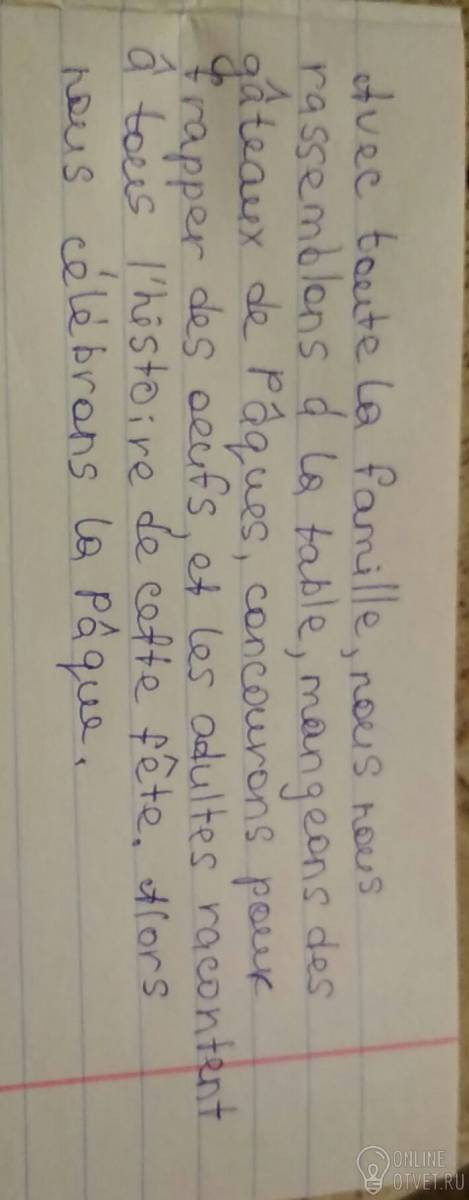 Avec toute la famille, nous nous
rassemblons á la table, mangeons des
gâteaux de Pâques, concourons pour
frapper des oeufs, et les adultes racontent
â tous l'histoire de cette fête. Alors
nous célébrons la Pâque.
ONLINE
OTVET.RU